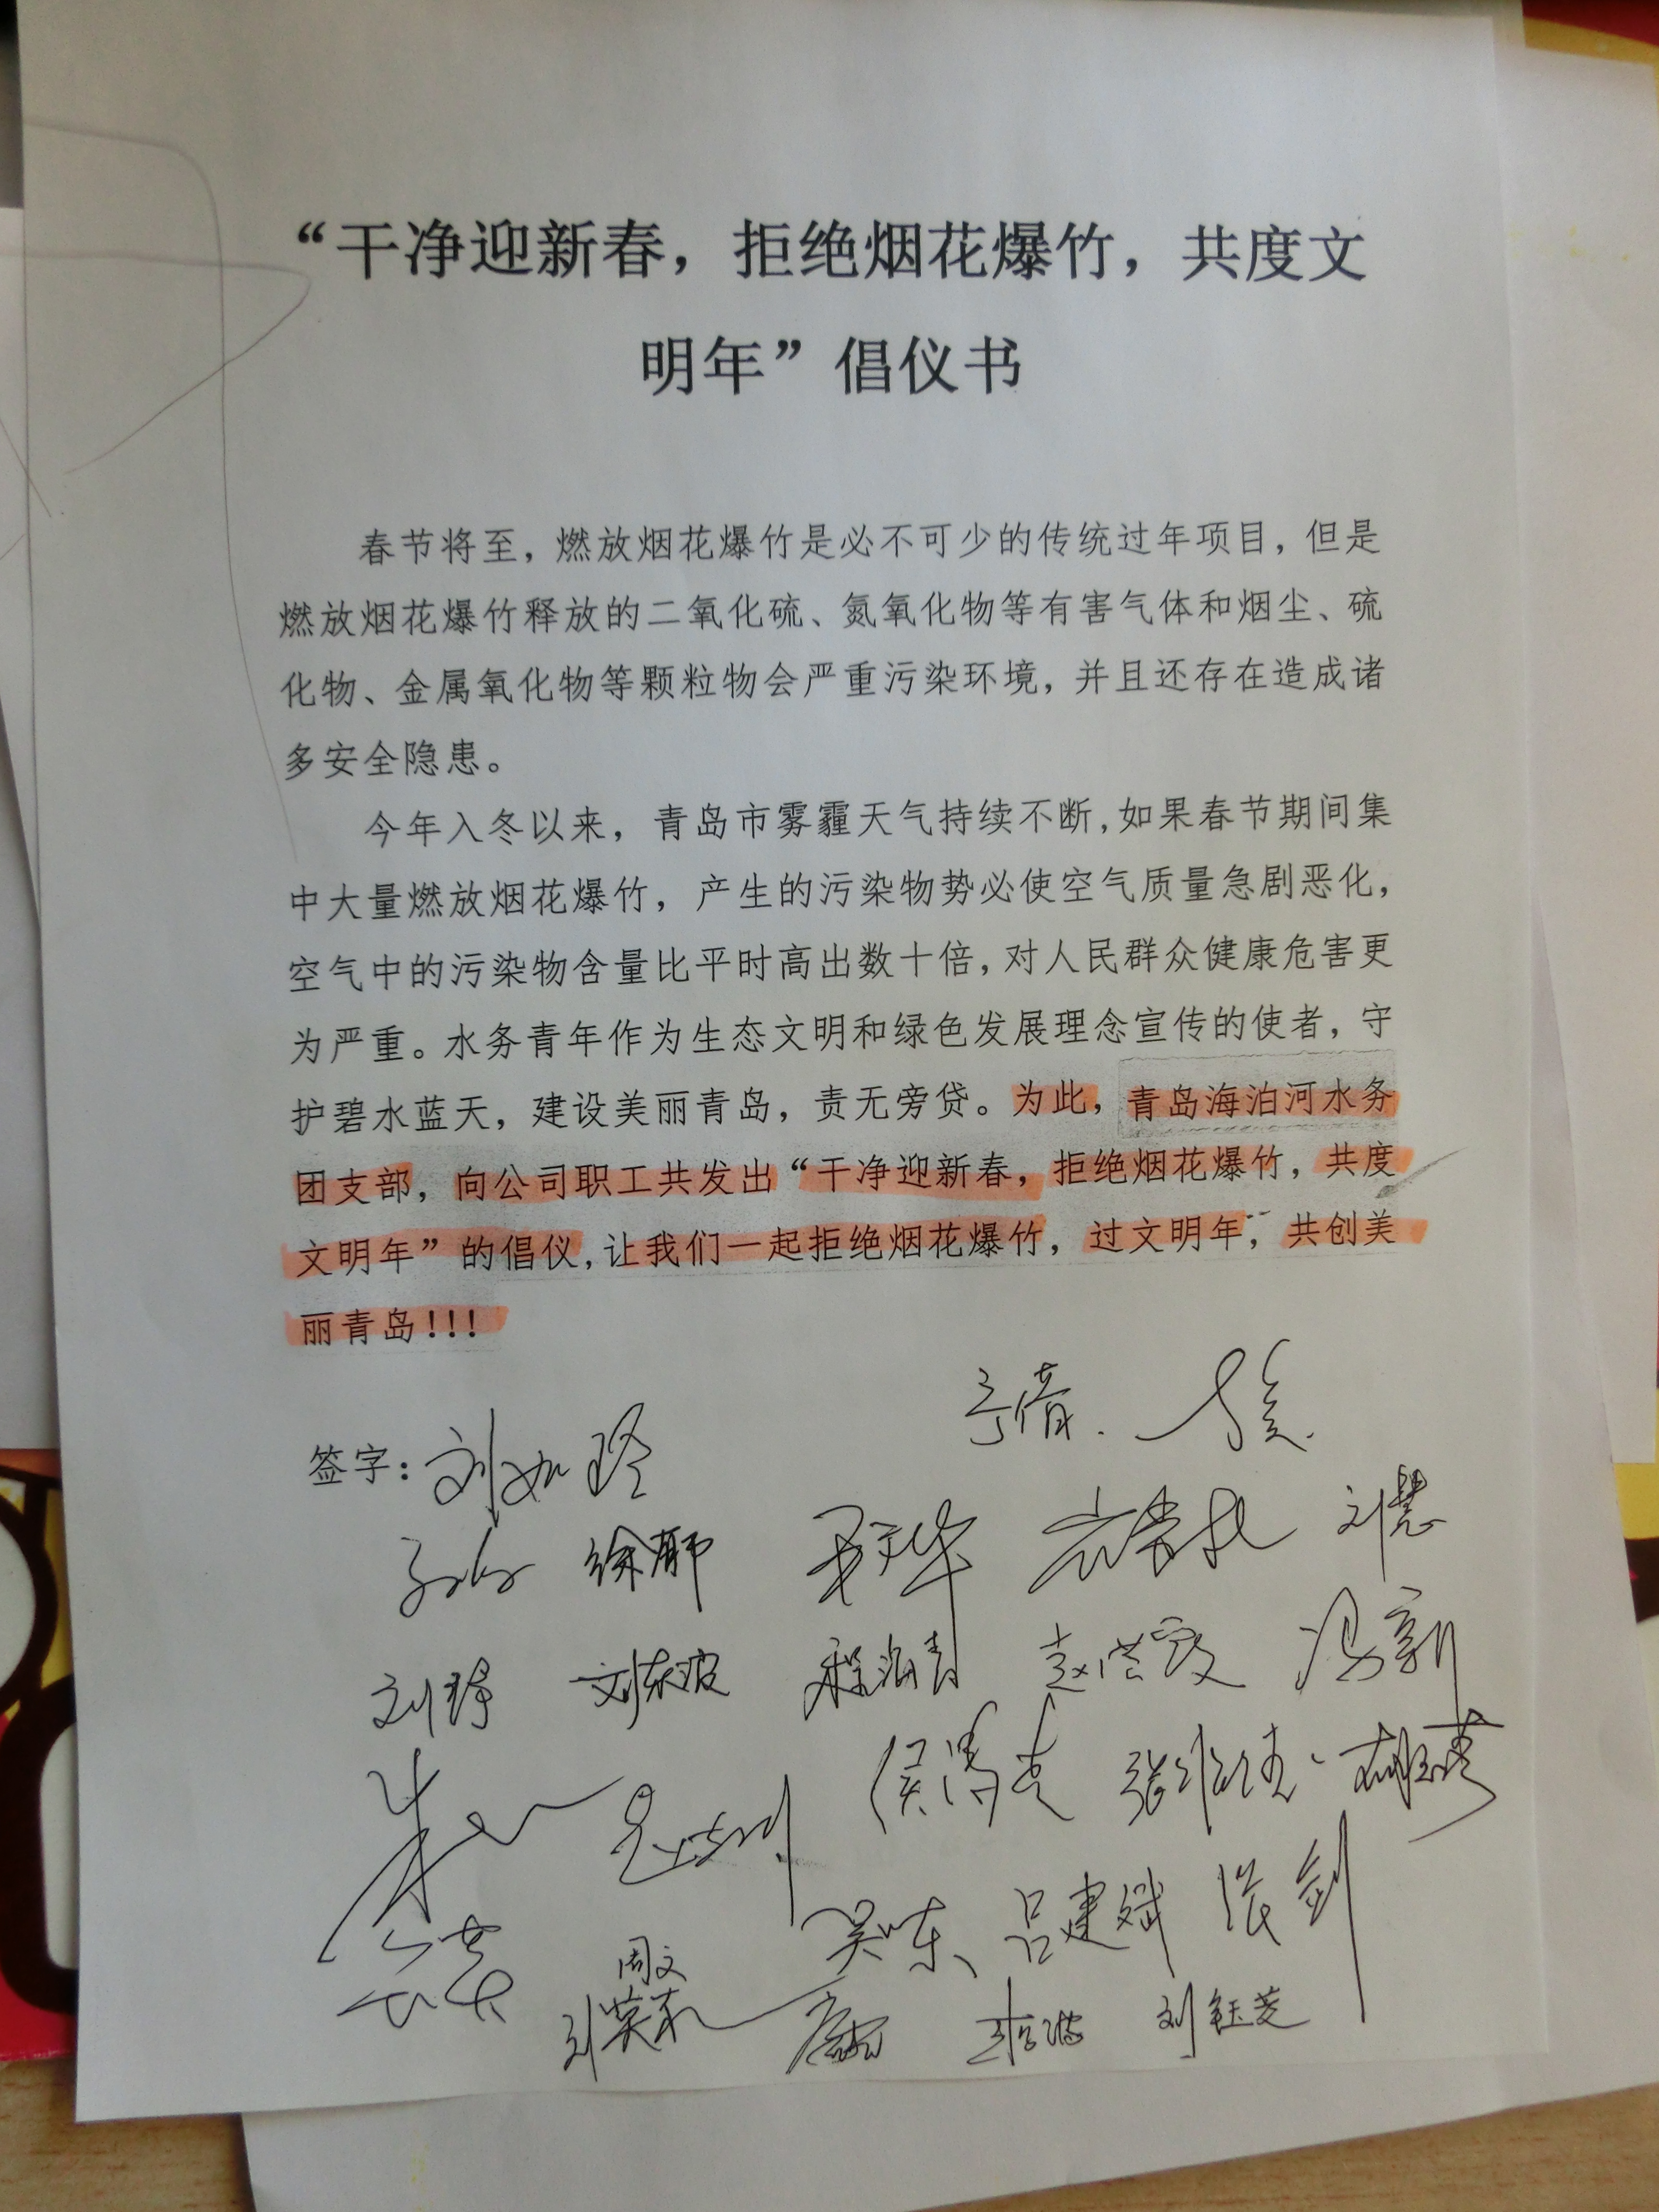 “干净迎新春，拒绝烟花爆竹，共度文
明年”倡仪书
春节将至，燃放烟花爆竹是必不可少的传统过年项目，但是
燃放烟花爆竹释放的二氧化硫、氮氧化物等有害气体和烟尘、硫
化物、金属氧化物等颗粒物会严重污染环境，并且还存在造成诸
多安全隐患。
今年入冬以来，青岛市雾霾天气持续不断,如果春节期间集
中大量燃放烟花爆竹，产生的污染物势必使空气质量急剧恶化，
空气中的污染物含量比平时高出数十倍，对人民群众健康危害更
为严重。水务青年作为生态文明和绿色发展理念宣传的使者，守
护碧水蓝天，建设美丽青岛，责无旁贷。为此，青岛海泊河水务
团支部，向公司职工共发出“干净迎新春，拒绝烟花爆竹，共度
文明年”的倡仪,让我们一起拒绝烟花爆竹，过文明年，共创美
丽青岛!!!
签字：刘如玲
刘慧
刘东波 程海青 冯新
吴东 吕建斌 张剑
周文
刘钰芝